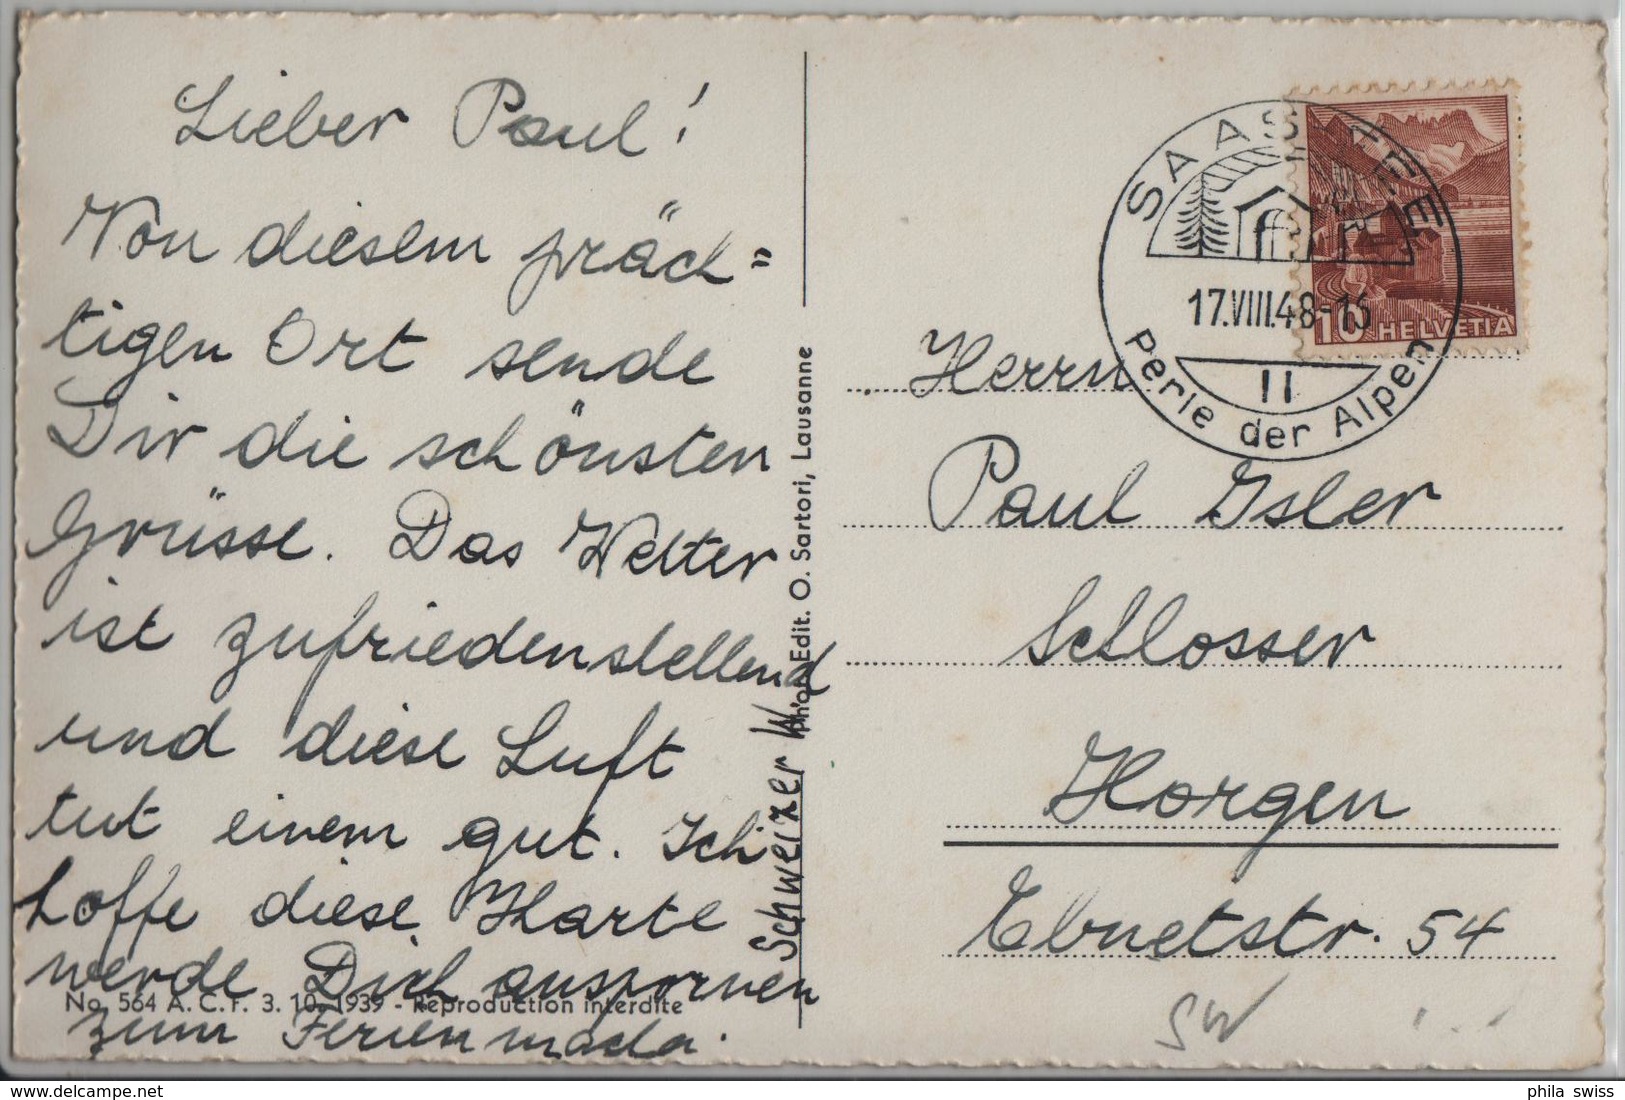 Lieber Paul!
Von diesem präch=
tigen Ort sende
Dir die schönsten
Grüsse. Das Wetter
ist zufriedenstellend
und diese Luft
tut einem gut. Ich
hoffe diese Karte
werde Dich anspornen
zum Ferienmacha.
Schweizer W.
No. 564 A.C.F. 3. 10. 1939 - Reproduction interdite
Phot. Edit. O. Sartori, Lausanne
SAAS-FEE
17.VIII.48-16
II
Perle der Alpen
10 HELVETIA
Herrn
Paul Isler
Schlosser
Horgen
Ebnetstr. 54
SW
phila swiss